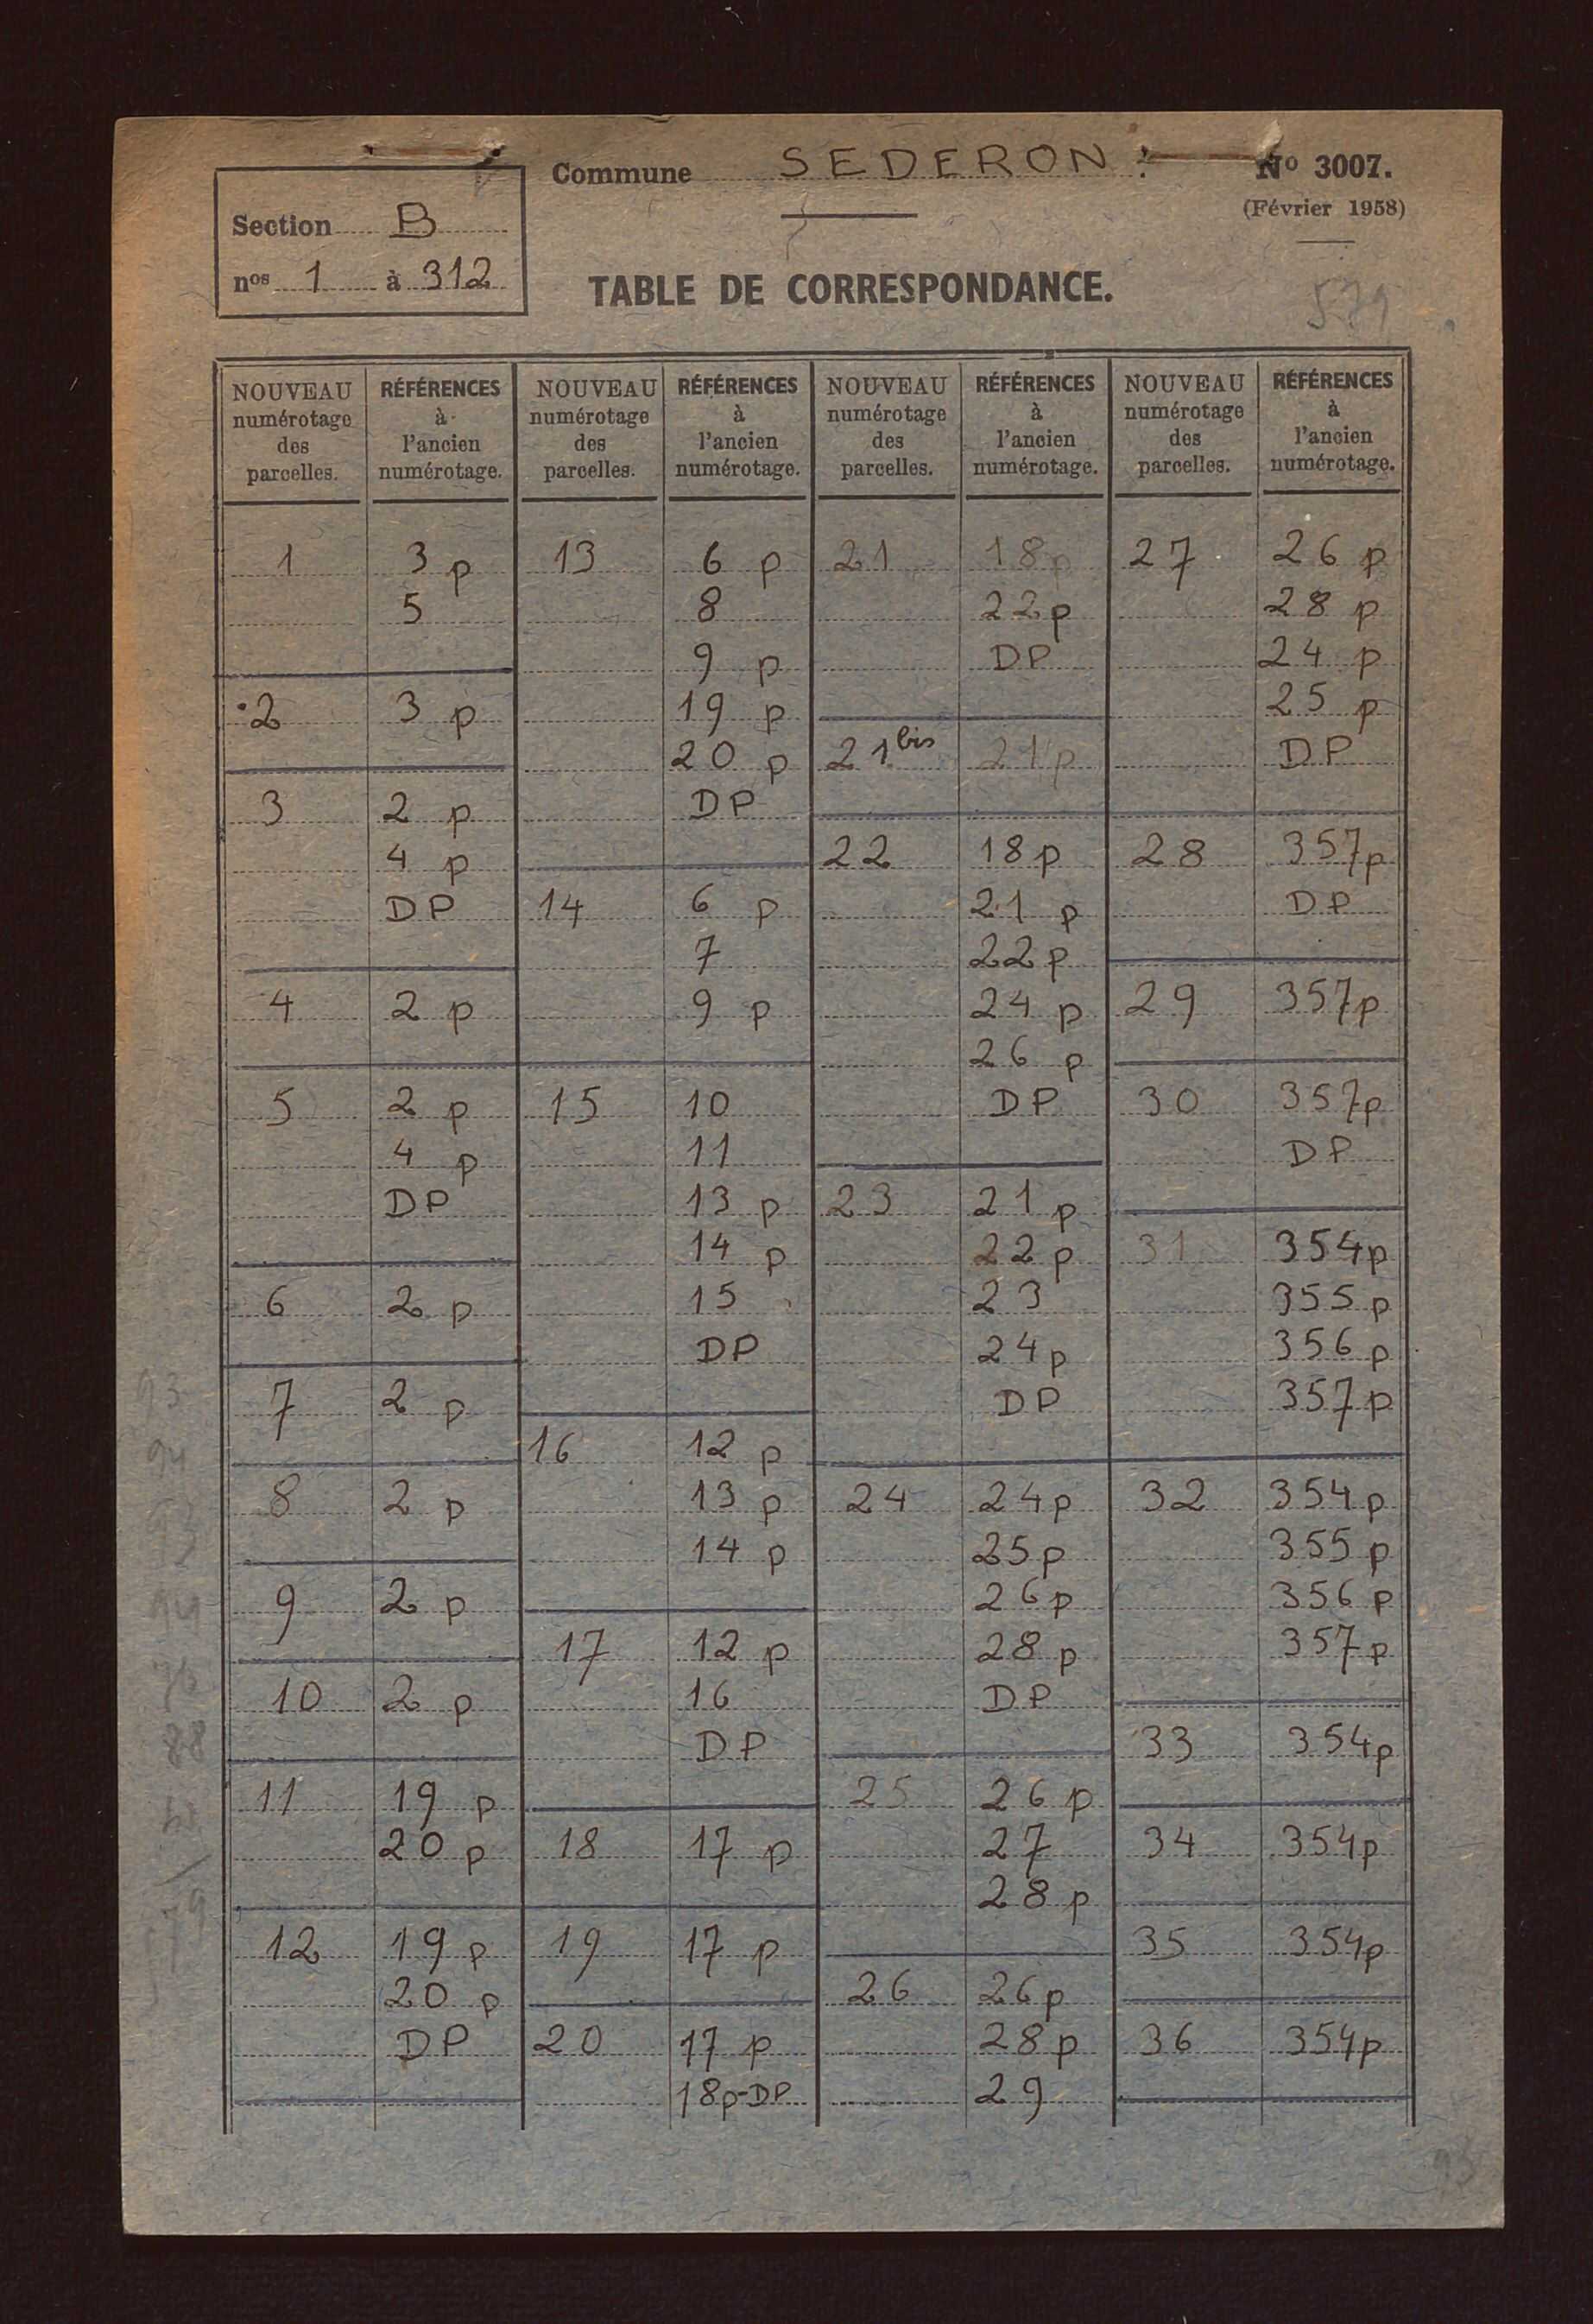 Commune SEDERON
Nº 3007.
(Février 1958)
Section B
nos 1 à 312
TABLE DE CORRESPONDANCE.
579
NOUVEAU numérotage des parcelles.
RÉFÉRENCES à l'ancien numérotage.
NOUVEAU numérotage des parcelles.
RÉFÉRENCES à l'ancien numérotage.
NOUVEAU numérotage des parcelles.
RÉFÉRENCES à l'ancien numérotage.
NOUVEAU numérotage des parcelles.
RÉFÉRENCES à l'ancien numérotage.
1 3 p
5
2 3 p
3 2 p
4 p
DP
4 2 p
5 2 p
4 p
DP
6 2 p
7 2 p
8 2 p
9 2 p
10 2 p
11 19 p
20 p
12 19 p
20 p
DP
13 6 p
8
9 p
19 p
20 p
DP
14 6 p
7
9 p
15 10
11
13 p
14 p
15
DP
16 12 p
13 p
14 p
17 12 p
16
DP
18 17 p
19 17 p
20 17 p
18p-DP
21 18p
22p
DP
21 bis 21 p
22 18 p
21 p
22 p
24 p
26 p
DP
23 21 p
22 p
23
24 p
DP
24 24 p
25 p
26 p
28 p
DP
25 26 p
27
28 p
26 26 p
28 p
29
27 26 p
28 p
24 p
25 p
DP
28 357p
DP
29 357p
30 357p
DP
31 354p
355 p
356 p
357 p
32 354 p
355 p
356 p
357 p
33 354p
34 354p
35 354p
36 354p